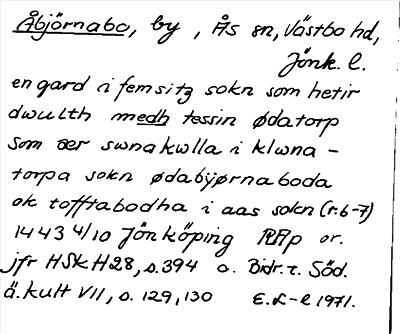 Åbjörnabo, by, Ås sn, Västbo hd,
Jönk. l.
en gard i femsitz sokn som hetir
dwulth medh tessin ødatorp
som ær swnakwlla i klwna-
torpa sokn ødabyjørnaboda
ok tofftabodha i aas sokn (r. 6-7)
1443 4/10 Jönköping RAp or.
jfr HSk H28, s. 394 o. Bidr. t. Söd.
ä. kult VII, s. 129, 130 E. L-e 1971.